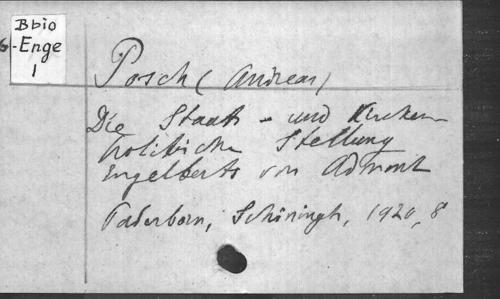 Bbio
-Enge
1
Posch (Andreas)
Die Staats- und Kirchen-
politische Stellung
Engelberts von Admont
Paderborn, Schöningh, 1920, 8